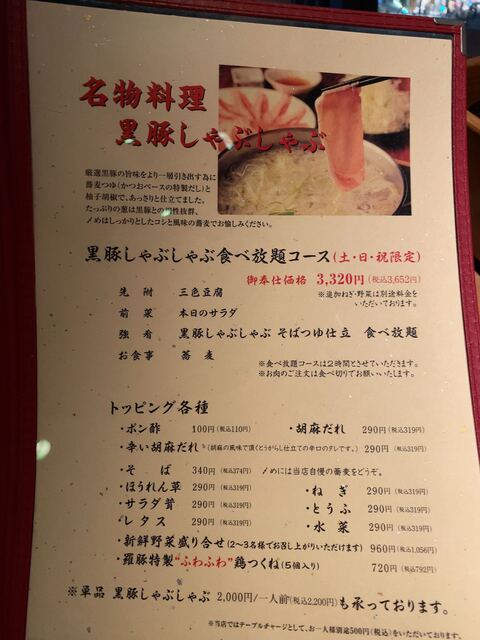 名物料理
黒豚しゃぶしゃぶ
厳選黒豚の旨味をより一層引き出す為に
蕎麦つゆ(かつおベースの特製だし)と
柚子胡椒で、あっさりと仕立てました。
たっぷりの葱は黒豚との相性抜群、
〆めはしっかりとしたコシと風味の蕎麦でお愉しみください。
黒豚しゃぶしゃぶ食べ放題コース(土・日・祝限定)
御奉仕価格 3,320円(税込3,652円)
先附 三色豆腐
※追加ねぎ・野菜は別途料金を
いただいております。
前菜 本日のサラダ
強肴 黒豚しゃぶしゃぶ そばつゆ仕立 食べ放題
お食事 蕎麦
※食べ放題コースは2時間とさせていただきます。
※お肉のご注文は食べ切りでお願いいたします。
トッピング各種
・ポン酢 100円(税込110円)
・胡麻だれ 290円(税込319円)
・辛い胡麻だれ(胡麻の風味で頂くとうがらし仕立ての辛口のタレです。) 290円(税込319円)
・そば 340円(税込374円) 〆めには当店自慢の蕎麦をどうぞ。
・ほうれん草 290円(税込319円)
・ねぎ 290円(税込319円)
・サラダ茸 290円(税込319円)
・とうふ 290円(税込319円)
・レタス 290円(税込319円)
・水菜 290円(税込319円)
・新鮮野菜盛り合せ(2〜3名様でお召し上がりいただけます) 960円(税込1,056円)
・羅豚特製"ふわふわ"鶏つくね(5個入り) 720円(税込792円)
※単品 黒豚しゃぶしゃぶ 2,000円/一人前(税込2,200円)も承っております。
※当店ではテーブルチャージとして、お一人様別途500円(税込)をいただいております。